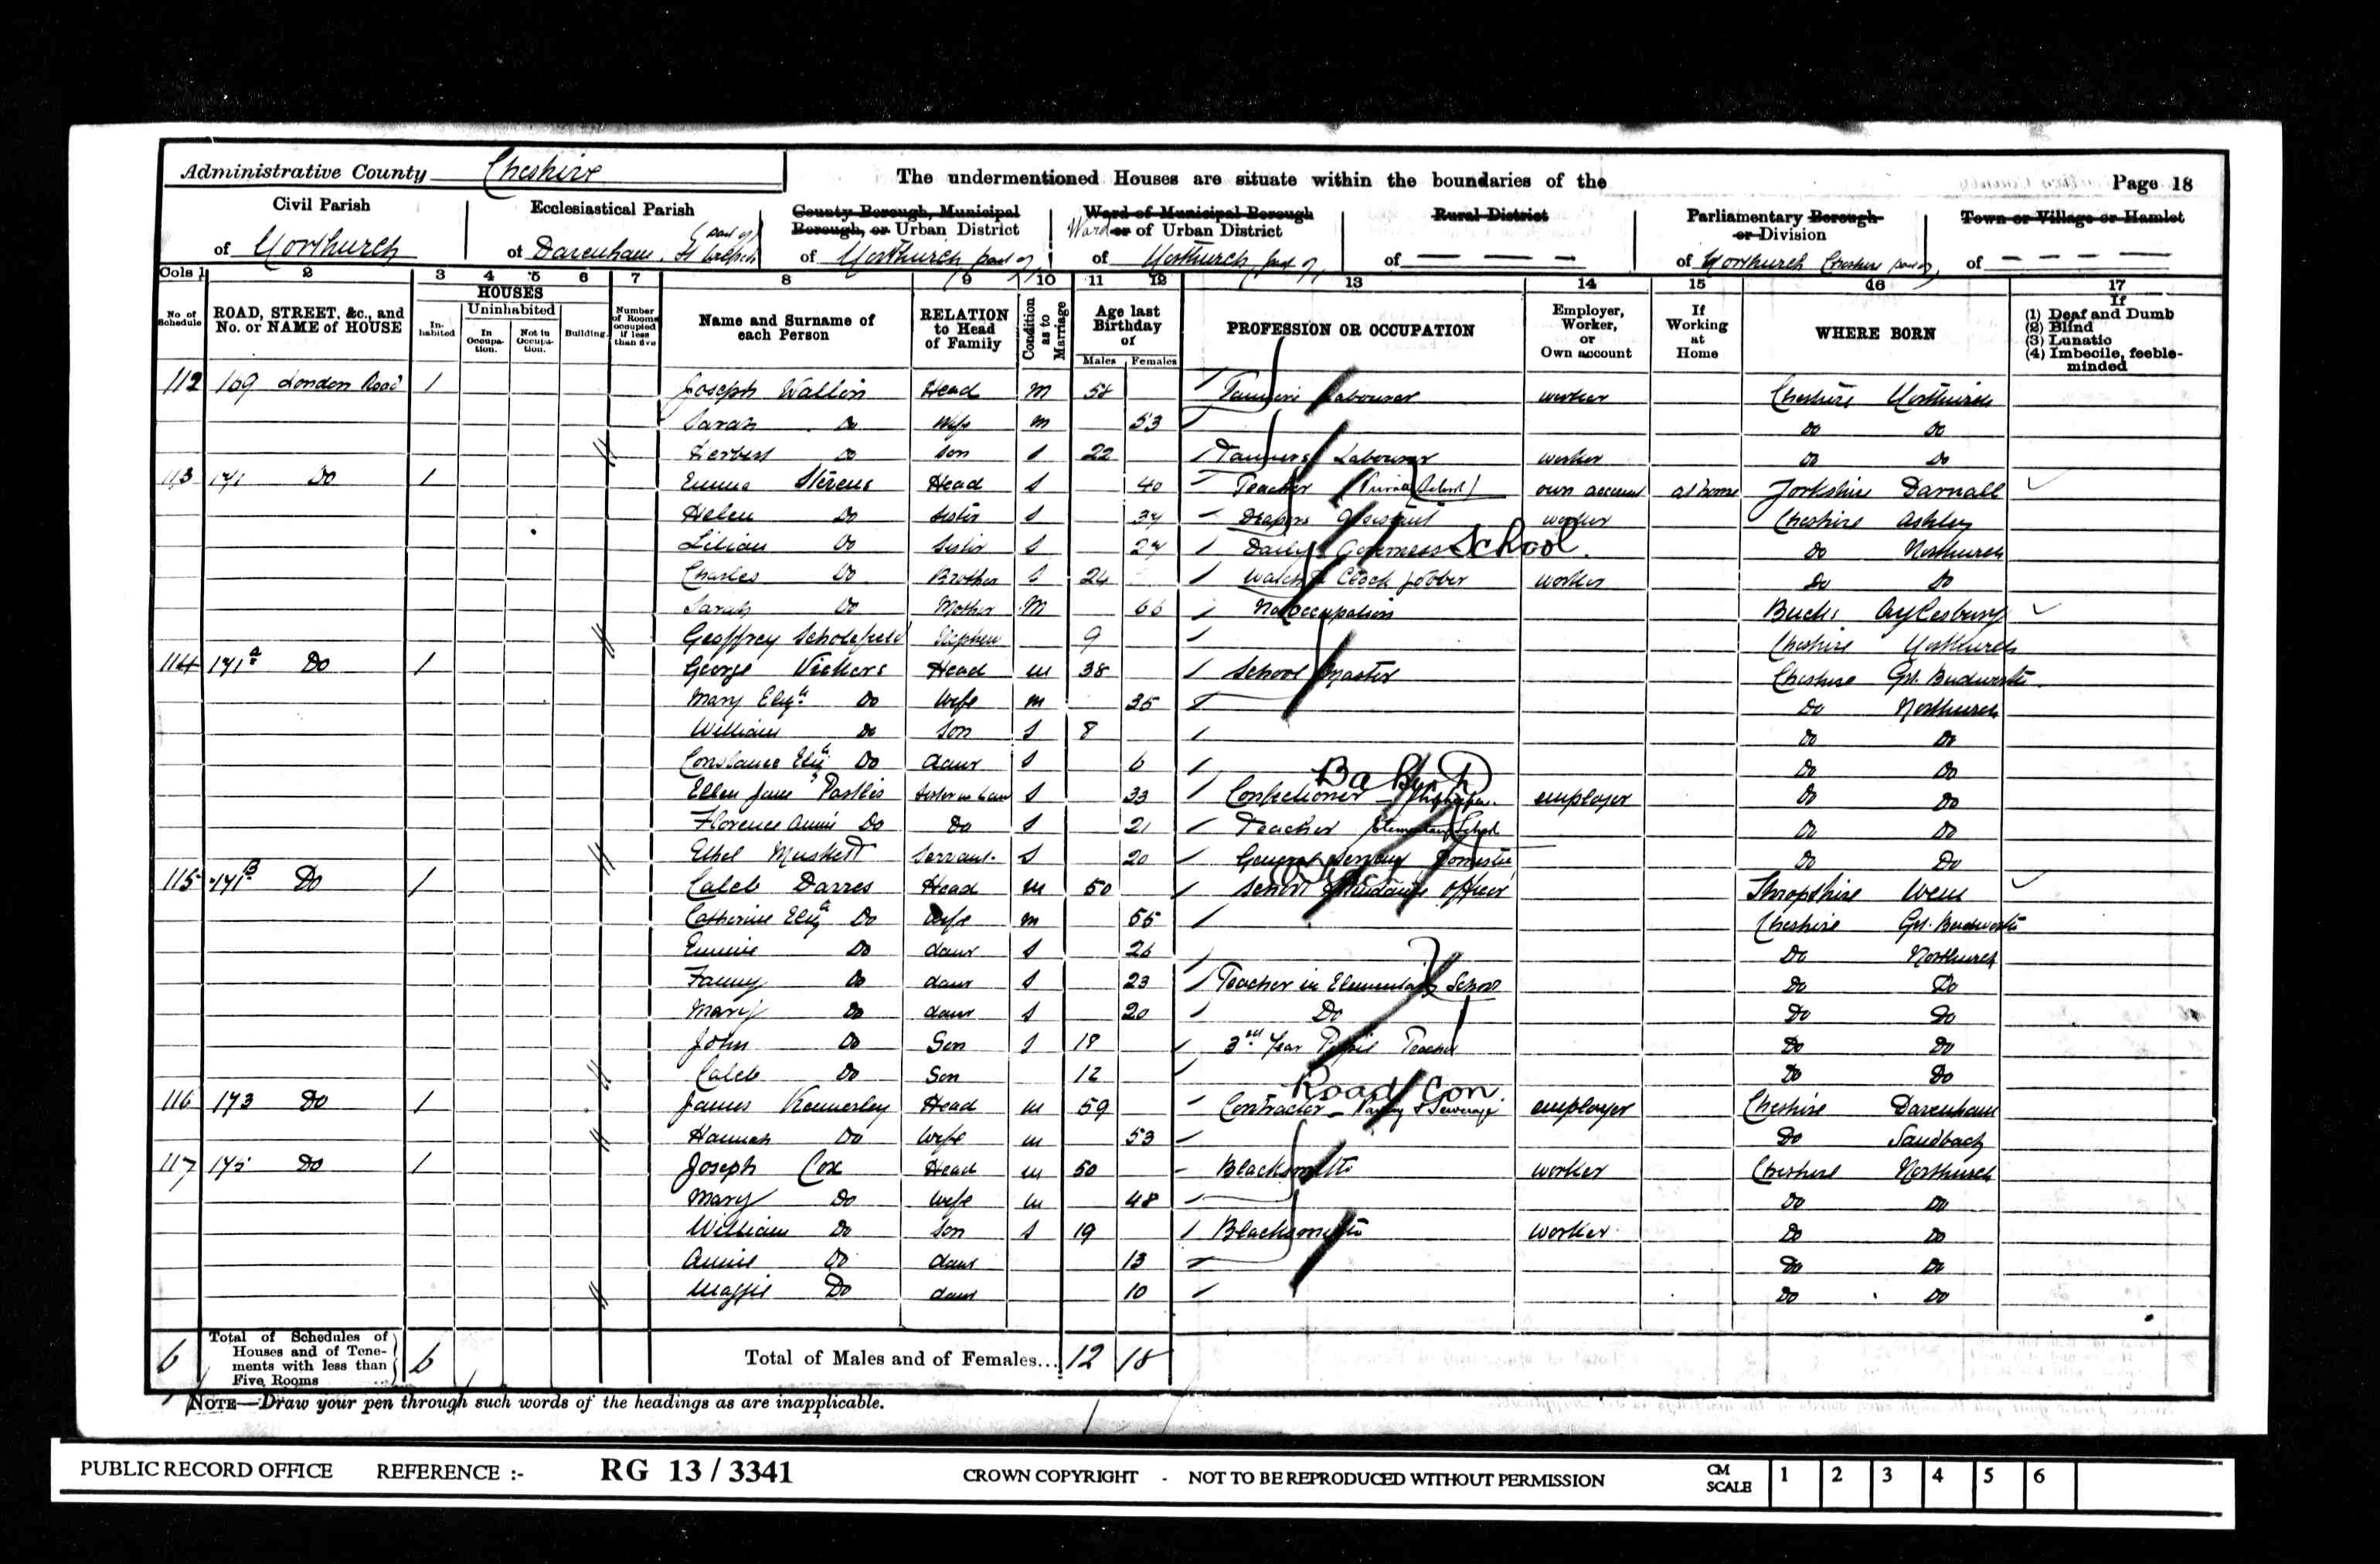 Administrative County Cheshire
The undermentioned Houses are situate within the boundaries of the
Page 18
Civil Parish of Northwich
Ecclesiastical Parish of Davenham part of
County Borough, Municipal Borough, or Urban District of Northwich part of
Ward of Municipal Borough Ward or of Urban District of Northwich part of
Rural District of — — —
Parliamentary Borough or Division of Northwich Cheshire part of
Town or Village or Hamlet of — — — —
Cols 1 2 3 4 5 6 7 8 9 10 11 12 13 14 15 16 17
No of Schedule
ROAD, STREET, &c., and No. or NAME of HOUSE
HOUSES
Inhabited
Uninhabited
In Occupation.
Not in Occupation.
Building
Number of Rooms occupied if less than five
Name and Surname of each Person
RELATION to Head of Family
Condition as to Marriage
Age last Birthday of
Males Females
PROFESSION OR OCCUPATION
Employer, Worker, or Own account
If Working at Home
WHERE BORN
If
(1) Deaf and Dumb
(2) Blind
(3) Lunatic
(4) Imbecile, feeble-minded
112 169 London Road 1 Joseph Wallin Head M 54 Labourer worker Cheshire Northwich
Sarah Do Wife M 53 Do Do
Herbert Do Son S 22 Tanners Labourer worker Do Do
113 171 Do 1 Emma Stevens Head S 40 Teacher (Private School) own account at home Yorkshire Darnall
Helen Do Sister S 34 Drapers Assistant worker Cheshire Ashley
Lilian Do Sister S 27 Daily Governess School Do Northwich
Charles Do Brother S 24 Watch & Clock Jobber worker Do Do
Sarah Do Mother M 66 No occupation Bucks Aylesbury
Geoffrey Scholefield Nephew 9 Cheshire Northwich
114 171a Do 1 George Vickers Head M 38 School Master Cheshire Gt. Budworth
Mary Elizth Do Wife M 35 Do Northwich
William Do Son S 8 Do Do
Constance Eliz Do Daur S 6 Do Do
Baker
Ellen Jane Sister in Law S 33 Confectioner employer Do Do
Florence Annie Do Do S 21 Teacher Elementary School Do Do
Ethel Muskett Servant S 20 General Servant Domestic Do Do
115 171B Do 1 Caleb Darres Head M 50 School Attendance Officer Shropshire Wem
Catherine Elizth Do Wife M 55 Cheshire Gt. Budworth
Emmie Do daur S 26 Do Northwich
Fanny Do daur S 23 Teacher in Elementary School Do Do
Mary Do daur S 20 Do Do Do
John Do Son S 18 3rd Year Pupil Teacher Do Do
Caleb Do Son 12 Do Do
Road Con.
116 173 Do 1 James Kennerley Head M 59 Contractor - Paving & Sewerage employer Cheshire Davenham
Hannah Do Wife M 53 Do Sandbach
117 175 Do 1 Joseph Cox Head M 50 Blacksmith worker Cheshire Northwich
Mary Do Wife M 48 Do Do
William Do Son S 19 Blacksmith worker Do Do
Annie Do daur 13 Do Do
Maggie Do daur 10 Do Do
6 Total of Schedules of Houses and of Tenements with less than Five Rooms 6 Total of Males and of Females... 12 18
NOTE—Draw your pen through such words of the headings as are inapplicable.
PUBLIC RECORD OFFICE REFERENCE :- RG 13 / 3341 CROWN COPYRIGHT - NOT TO BE REPRODUCED WITHOUT PERMISSION CM SCALE 1 2 3 4 5 6